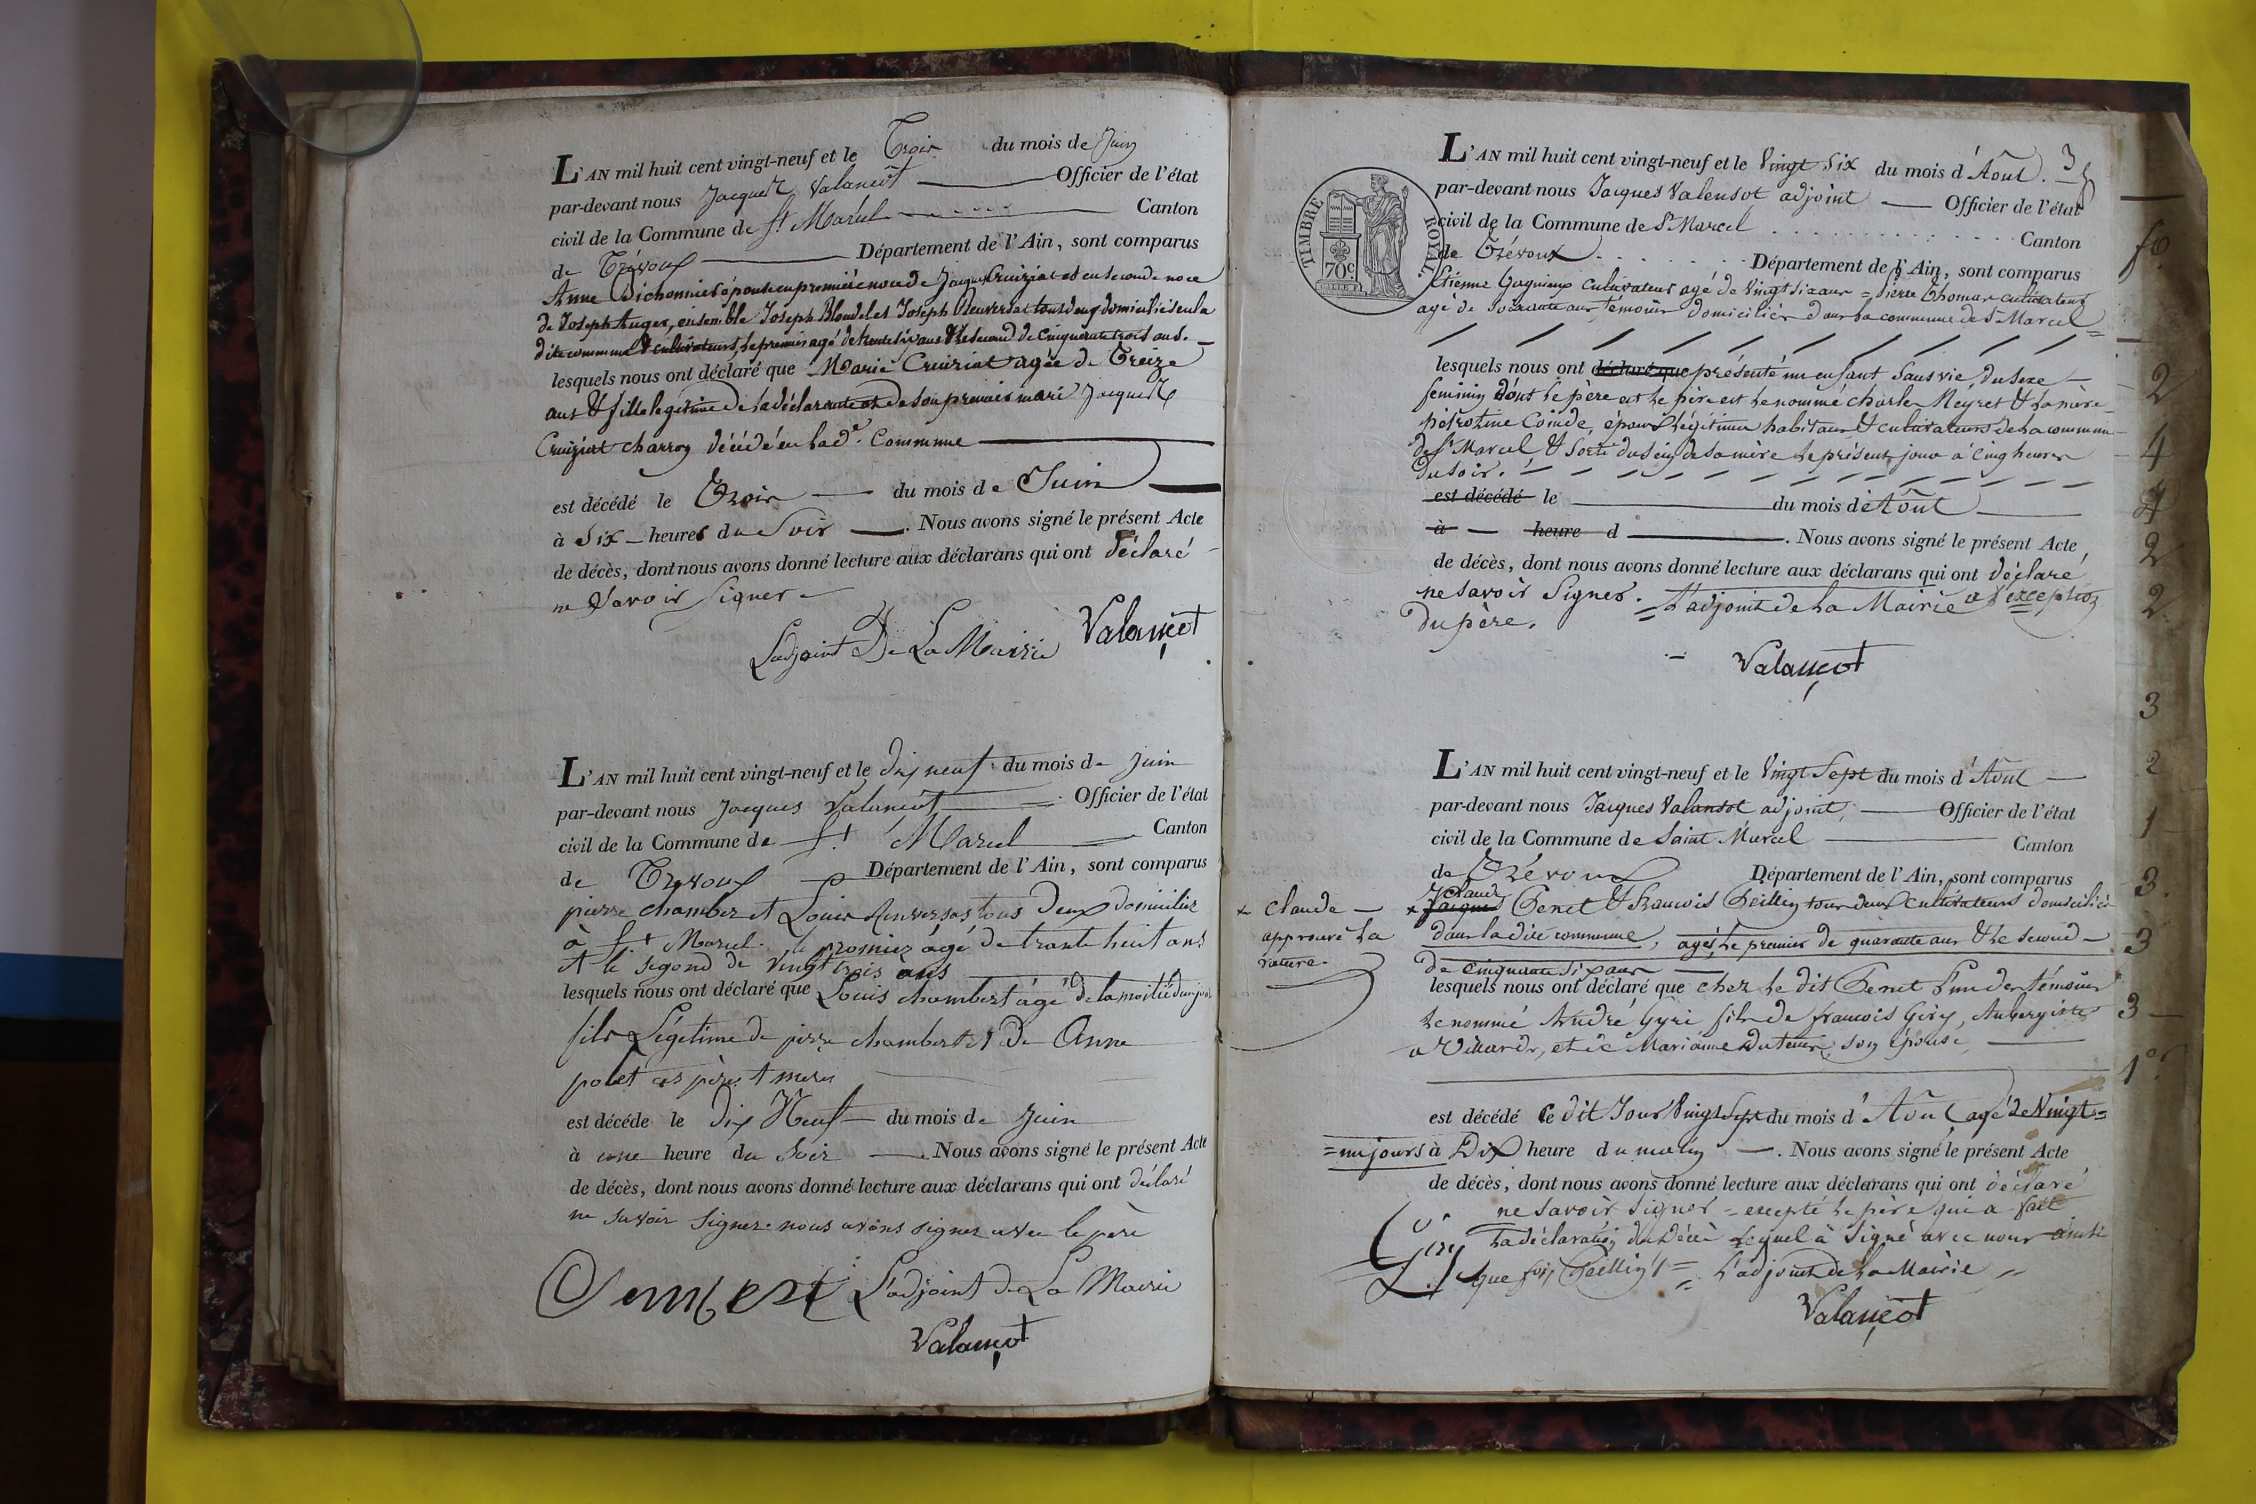 L'AN mil huit cent vingt-neuf et le Trois du mois de Juin
par-devant nous Jacques Valançot Officier de l'état
civil de la Commune de St Marcel Canton
de Trévoux Département de l'Ain, sont comparus
Anne Bichonnier épouse en première noce de Jacques Cruiziat et en seconde noce
de Joseph Auger, ensemble Joseph Blondel et Joseph Renversas tous deux domiciliés en la
dite commune & cultivateurs, le premier agé de trente six ans & le second de cinquante trois ans.
lesquels nous ont déclaré que Marie Cruiziat agée de Treize
ans & fille légitime de la déclarante et de son premier mari Jacques
Cruiziat charron décédé en la de. Commune
est décédé le Trois du mois de Juin
à Six heures du Soir. Nous avons signé le présent Acte
de décès, dont nous avons donné lecture aux déclarans qui ont déclaré
ne Savoir Signer
L'adjoint De La Mairie Valançot
L'AN mil huit cent vingt-neuf et le dix neuf du mois de Juin
par-devant nous Jacques Valançot Officier de l'état
civil de la Commune de St Marcel Canton
de Trévoux Département de l'Ain, sont comparus
pierre chamber et Louis Renversas tous Deux domicilier
à St Marcel. le premier âgé de trante huit ans
et le segond de vingt trois ans
lesquels nous ont déclaré que Louis chambert âgé de la moitié d'un jour
fils Légitime de pierre chambert et De Anne
polet ces père et mere
est décéde le Dix Neuf du mois de Juin
à une heure du Soir. Nous avons signé le présent Acte
de décès, dont nous avons donné lecture aux déclarans qui ont déclaré
ne savoir signer nous avons signer avec le père
L'adjoint De La Mairie
Valançot
L'AN mil huit cent vingt-neuf et le Vingt Six du mois d'Aôut.
par-devant nous Jacques Valensot adjoint Officier de l'état
civil de la Commune de St Marcel Canton
de Trévoux Département de l'Ain, sont comparus
TIMBRE ROYAL 70c.
Etienne Gagnieux cultivateur agé de Vingt six ans = Pierre Thomas cultivateur
agé de Soixante ans, témoins domiciliés dans la commune de St Marcel =
lesquels nous ont déclaré que présenté un enfant sans vie, du sexe
feminin dont le père est le père est le nommé Charles Meyret & la mère
pétrotine Coinde, époux légitimes habitans & cultivateurs de la commune
de St Marcel, & Sorti du sein de sa mère le présent jour à Cinq heures
du soir.
est décédé le du mois d'Aôut
à heure d . Nous avons signé le présent Acte
de décès, dont nous avons donné lecture aux déclarans qui ont déclaré
ne Savoir Signer. L'adjoint de la Mairie à l'exception
du père.
Valançot
L'AN mil huit cent vingt-neuf et le Vingt Sept du mois d'Aôut
par-devant nous Jacques Valansot adjoint, Officier de l'état
civil de la Commune de Saint Marcel Canton
de Trévoux Département de l'Ain, sont comparus
x Claude
approuvé la
rature.
Claude
x Jacques Penet & Francois Peillin tous deux cultivateurs domiciliés
dans la dite commune, agés le premier de quarante ans & le second
de cinquante six ans
lesquels nous ont déclaré que chez le dit Penet l'un des témoins
le nommé André Gyri fils de francois Giry, Aubergiste
a Villards, et de Mariânne Duteur, son épouse,
est décédé ce dit Jour Vingt Sept du mois d'Aôut agé de Vingt=
=un jours à Dix heure du matin. Nous avons signé le présent Acte
de décès, dont nous avons donné lecture aux déclarans qui ont déclaré
ne savoir signer = excepté le père qui a fait
la déclaration du Décès lequel à signé avec nous ainsi
Giry
que fois Peillin = L'adjoint de la Mairie =
Valançot
fo
2
4
4
2
2
3
2
1
3.
3
3